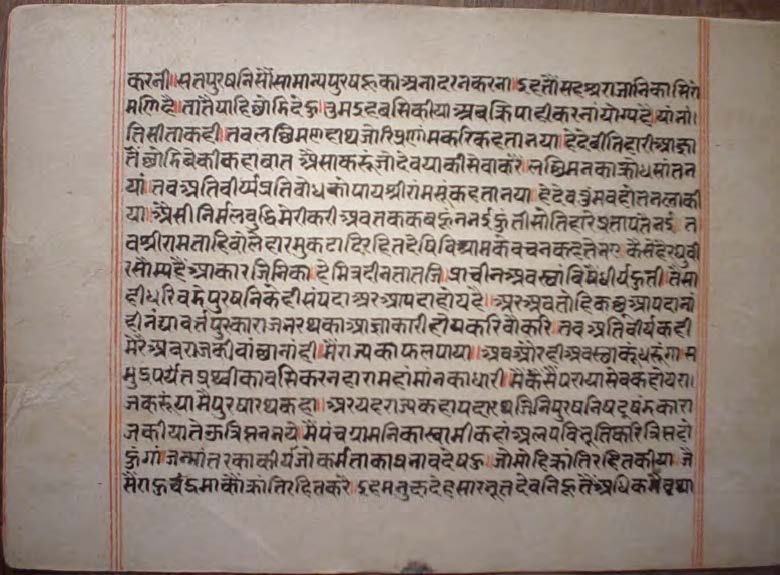 करनी॥सतपुरषनिसौंसामान्यपुरषहूकाअनादरनकरना॥इहतौसहश्रराजानिकासिरो
मणिहै॥तातैयाहिछोडिदेहु।तुमइहबसिकीयाअबक्रिपाहीकरनांयोग्यहै॥यांनां
तिसीताकही।तबलछिमणहाथजोरिप्रणांमकरिकहतानया।हेदेवीतिहारीआज्ञा
तैंछोडिबेकीकहाबात।अैसाकरूजोदेवयाकीसेवाकरै।लछिमनकाक्रोधसांतन
यां।तबअतिवीर्यप्रतिबोधकोंपायश्रीरामसूंकहतानया।हेदेवतुमबहोतनलाकी
या।अैसीनिर्मलबुद्धिमेरीकरीअबतककबहूनन ईहुंतीसोतिहारेप्रतापतेंन ई।त
बश्रीरामताहिबोलेहारमुकटादिरहितदेषिविश्रामकेबचनकहतेनए।कैसेहैरघुवी
रसौम्यहैआकारजिनिका।हेमित्रदीनतातजि।प्राचीनअवस्थांविषैधीर्यहुती।तैसी
हीधरि।बडेपुरषनिकेहीसंपदाअरआपदाहोयहै।अरअबतोहिकछूआपदानां
हीनंद्यावर्तपुरकाराजनरथकाआज्ञाकारीहोयकरिबौकरि।तबअतिवीर्यकही
मेरैअबराजकीवांछानांही।मैंराज्यकाफलपाया।अबऔरहीअवस्थाकूंधरूंगा।स
मुद्रपर्यंतप्रथ्वीकाबसिकरनहारामहांमांनकाधारी।मैंकैसैपरायासेवकहोयरा।
जकरूं।यामैपुरषारथकहा।अरयहराज्यकहापदारथ।जिनिपुरषनिषटषंडकारा
जकीयातेऊत्रिप्तनभये।मैपंचग्रामनिकास्वामीकहांअलपविभूतिकरित्रिप्तहो
हुंगां।जन्मांतरकाकीयजोकर्मताकाप्रभावदेषहु।जोमोहिक्रांतिरहितकीया।जै
सैंराहुचंद्रमाकौंक्रांतिरहितकरै।इहमनुक्षदेहसारभूतदेवनिहूतैंअधिकमैंव्रथा